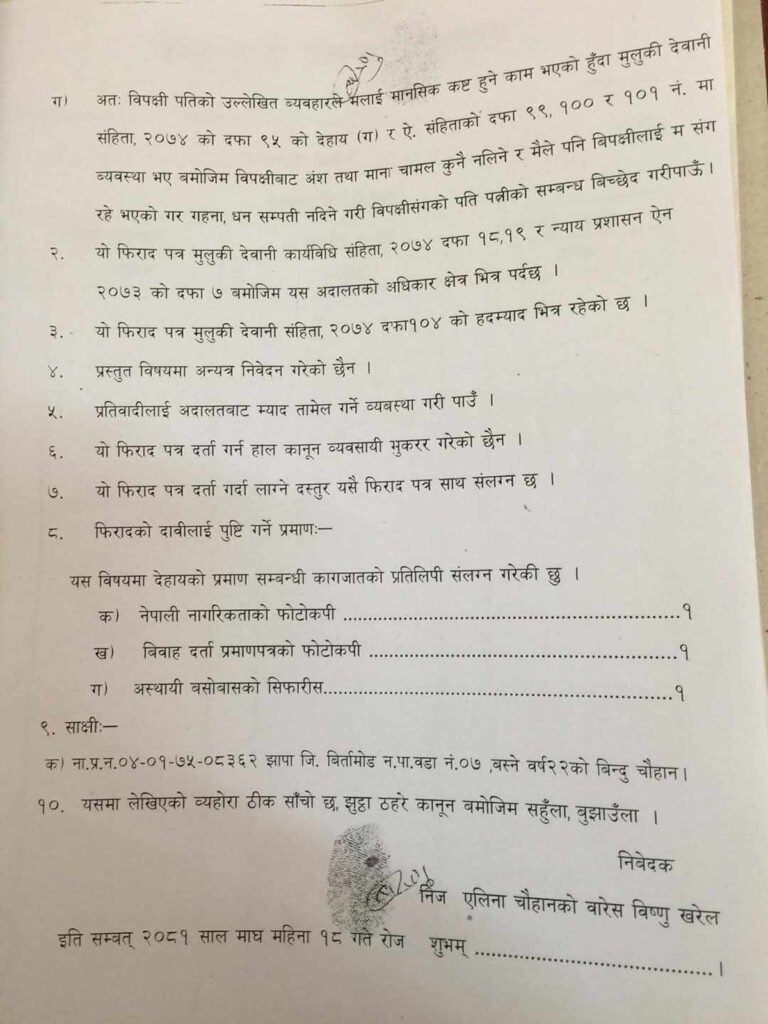 ग) अतः विपक्षी पतिको उल्लेखित व्यवहारले मलाई मानसिक कष्ट हुने काम भएको हुँदा मुलुकी देवानी
संहिता, २०७४ को दफा ९५ को देहाय (ग) र ऐ. संहिताको दफा ९९, १०० र १०१ नं. मा
व्यवस्था भए बमोजिम विपक्षीबाट अंश तथा माना चामल कुनै नलिने र मैले पनि बिपक्षीलाई म संग
रहे भएको गर गहना, धन सम्पती नदिने गरी बिपक्षीसंगको पति पत्नीको सम्बन्ध बिच्छेद गरीपाऊँ ।
२. यो फिराद पत्र मुलुकी देवानी कार्यविधि संहिता, २०७४ दफा १८,१९ र न्याय प्रशासन ऐन
२०७३ को दफा ७ बमोजिम यस अदालतको अधिकार क्षेत्र भित्र पर्दछ ।
३. यो फिराद पत्र मुलुकी देवानी संहिता, २०७४ दफा१०४ को हदम्याद भित्र रहेको छ ।
४. प्रस्तुत विषयमा अन्यत्र निवेदन गरेको छैन ।
५. प्रतिवादीलाई अदालतबाट म्याद तामेल गर्ने व्यबस्था गरी पाउँ ।
६. यो फिराद पत्र दर्ता गर्न हाल कानून व्यवसायी मुकरर गरेको छैन ।
७. यो फिराद पत्र दर्ता गर्दा लाग्ने दस्तुर यसै फिराद पत्र साथ संलग्न छ ।
८. फिरादको दावीलाई पुष्टि गर्ने प्रमाणः—
यस विषयमा देहायको प्रमाण सम्बन्धी कागजातको प्रतिलिपी संलग्न गरेकी छु ।
क) नेपाली नागरिकताको फोटोकपी ................................................................१
ख) बिवाह दर्ता प्रमाणपत्रको फोटोकपी ...........................................................१
ग) अस्थायी बसोबासको सिफारीस..................................................................१
९. साक्षीः—
क) ना.प्र.न.०४-०१-७५-०८३६२ झापा जि. बिर्तामोड न.पा.वडा नं.०७ ,बस्ने वर्ष२२को बिन्दु चौहान।
१०. यसमा लेखिएको व्यहोरा ठीक साँचो छ, झुट्ठा ठहरे कानून बमोजिम सहुँला, बुझाउँला ।
निबेदक
निज एलिना चौहानको वारेस विष्णु खरेल
इति सम्बत् २०८१ साल माघ महिना १८ गते रोज शुभम् .............................................।